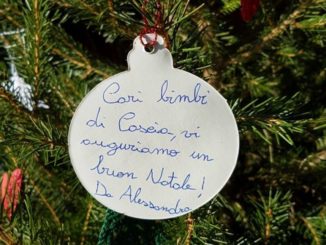 Cari bimbi
di Cascia, vi
auguriamo un
buon Natale!
Da Alessandra